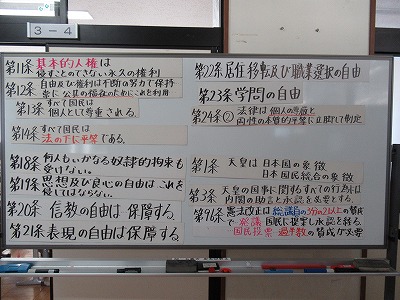 3-4
第11条 基本的人権は
侵すことのできない永久の権利
第12条 自由及び権利は不断の努力で保持
常に公共の福祉のためにこれを利用
第13条 すべて国民は
個人として尊重される。
第14条 すべて国民は
法の下に平等である。
第18条 何人もいかなる奴隷的拘束も
受けない。
第19条 思想及び良心の自由はこれを
侵してはならない。
第20条 信教の自由は保障する。
第21条 表現の自由は保障する。
第22条 居住移転及び職業選択の自由
第23条 学問の自由
第24条② 法律は個人の尊厳と
両性の本質的平等に立脚して制定
第1条 天皇は日本国の象徴
日本国民統合の象徴
第3条 天皇の国事に関するすべての行為には
内閣の助言と承認を必要とする。
第96条 憲法改正は総議員の3分の2以上の賛成
で発議 国民に提案し承認を経る。
国民投票 過半数の賛成が必要